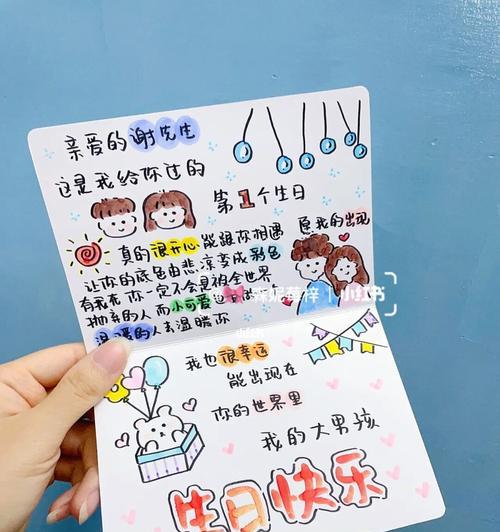 亲爱的谢先生
这是我给你过的
第1个生日
真的很开心能跟你相遇
愿我的出现
让你的底色由悲凉变成彩色
有我在你一定不会是被全世界
抛弃的人而小可爱
温暖的人去温暖你
森妮莓梓
小红书
小红书
我也很幸运
能出现在
你的世界里
我的大男孩
生日快乐